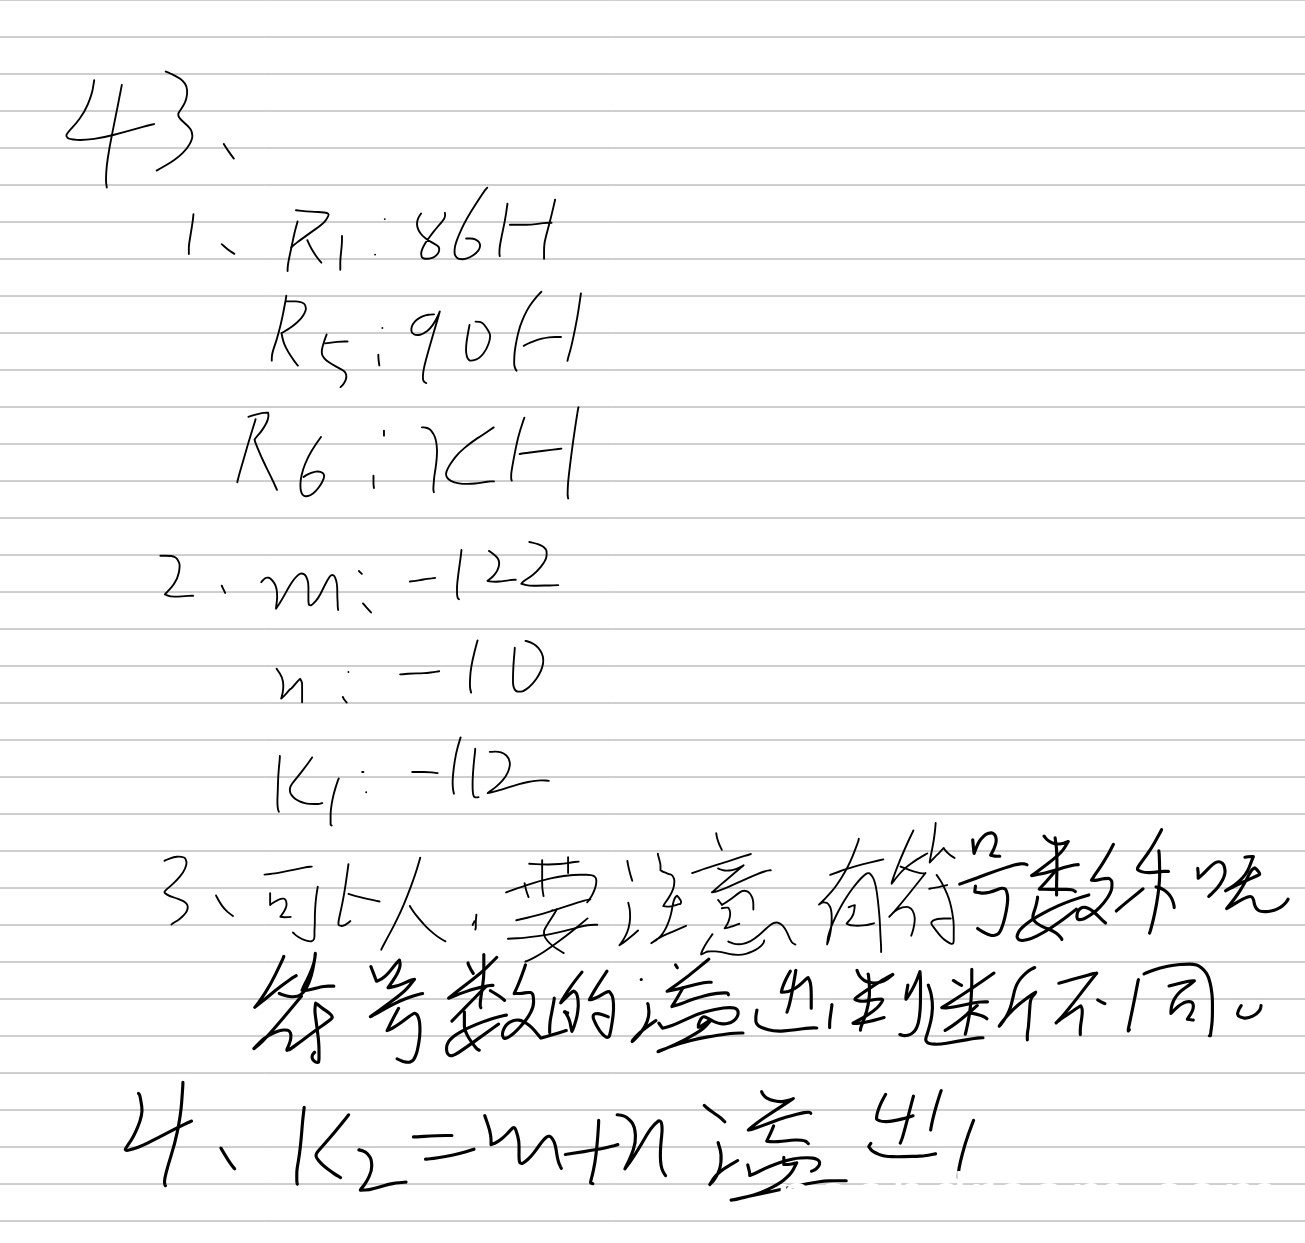 43、
1、R1:86H
R5:90H
R6:7CH
2、m:-122
n:-10
K1:-112
3、可以,要注意有符号数和无
符号数的溢出判断不同。
4、K2=m+n溢出